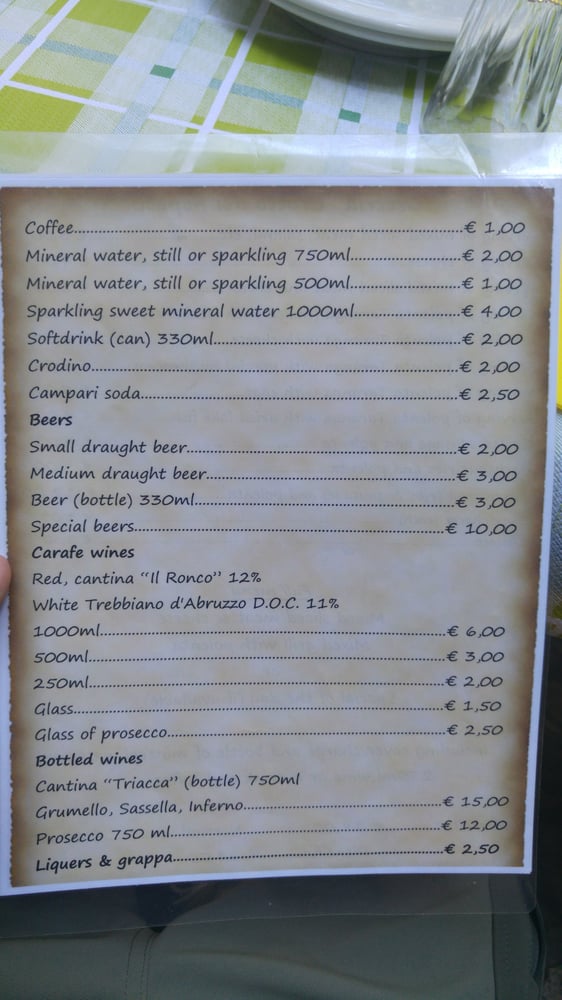 Coffee........€ 1,00
Mineral water, still or sparkling 750ml........€ 2,00
Mineral water, still or sparkling 500ml........€ 1,00
Sparkling sweet mineral water 1000ml........€ 4,00
Softdrink (can) 330ml........€ 2,00
Crodino........€ 2,00
Campari soda........€ 2,50
Beers
Small draught beer........€ 2,00
Medium draught beer........€ 3,00
Beer (bottle) 330ml........€ 3,00
Special beers........€ 10,00
Carafe wines
Red, cantina “Il Ronco” 12%
White Trebbiano d'Abruzzo D.O.C. 11%
1000ml........€ 6,00
500ml........€ 3,00
250ml........€ 2,00
Glass........€ 1,50
Glass of prosecco........€ 2,50
Bottled wines
Cantina “Triacca” (bottle) 750ml
Grumello, Sassella, Inferno........€ 15,00
Prosecco 750 ml........€ 12,00
Liquers & grappa........€ 2,50